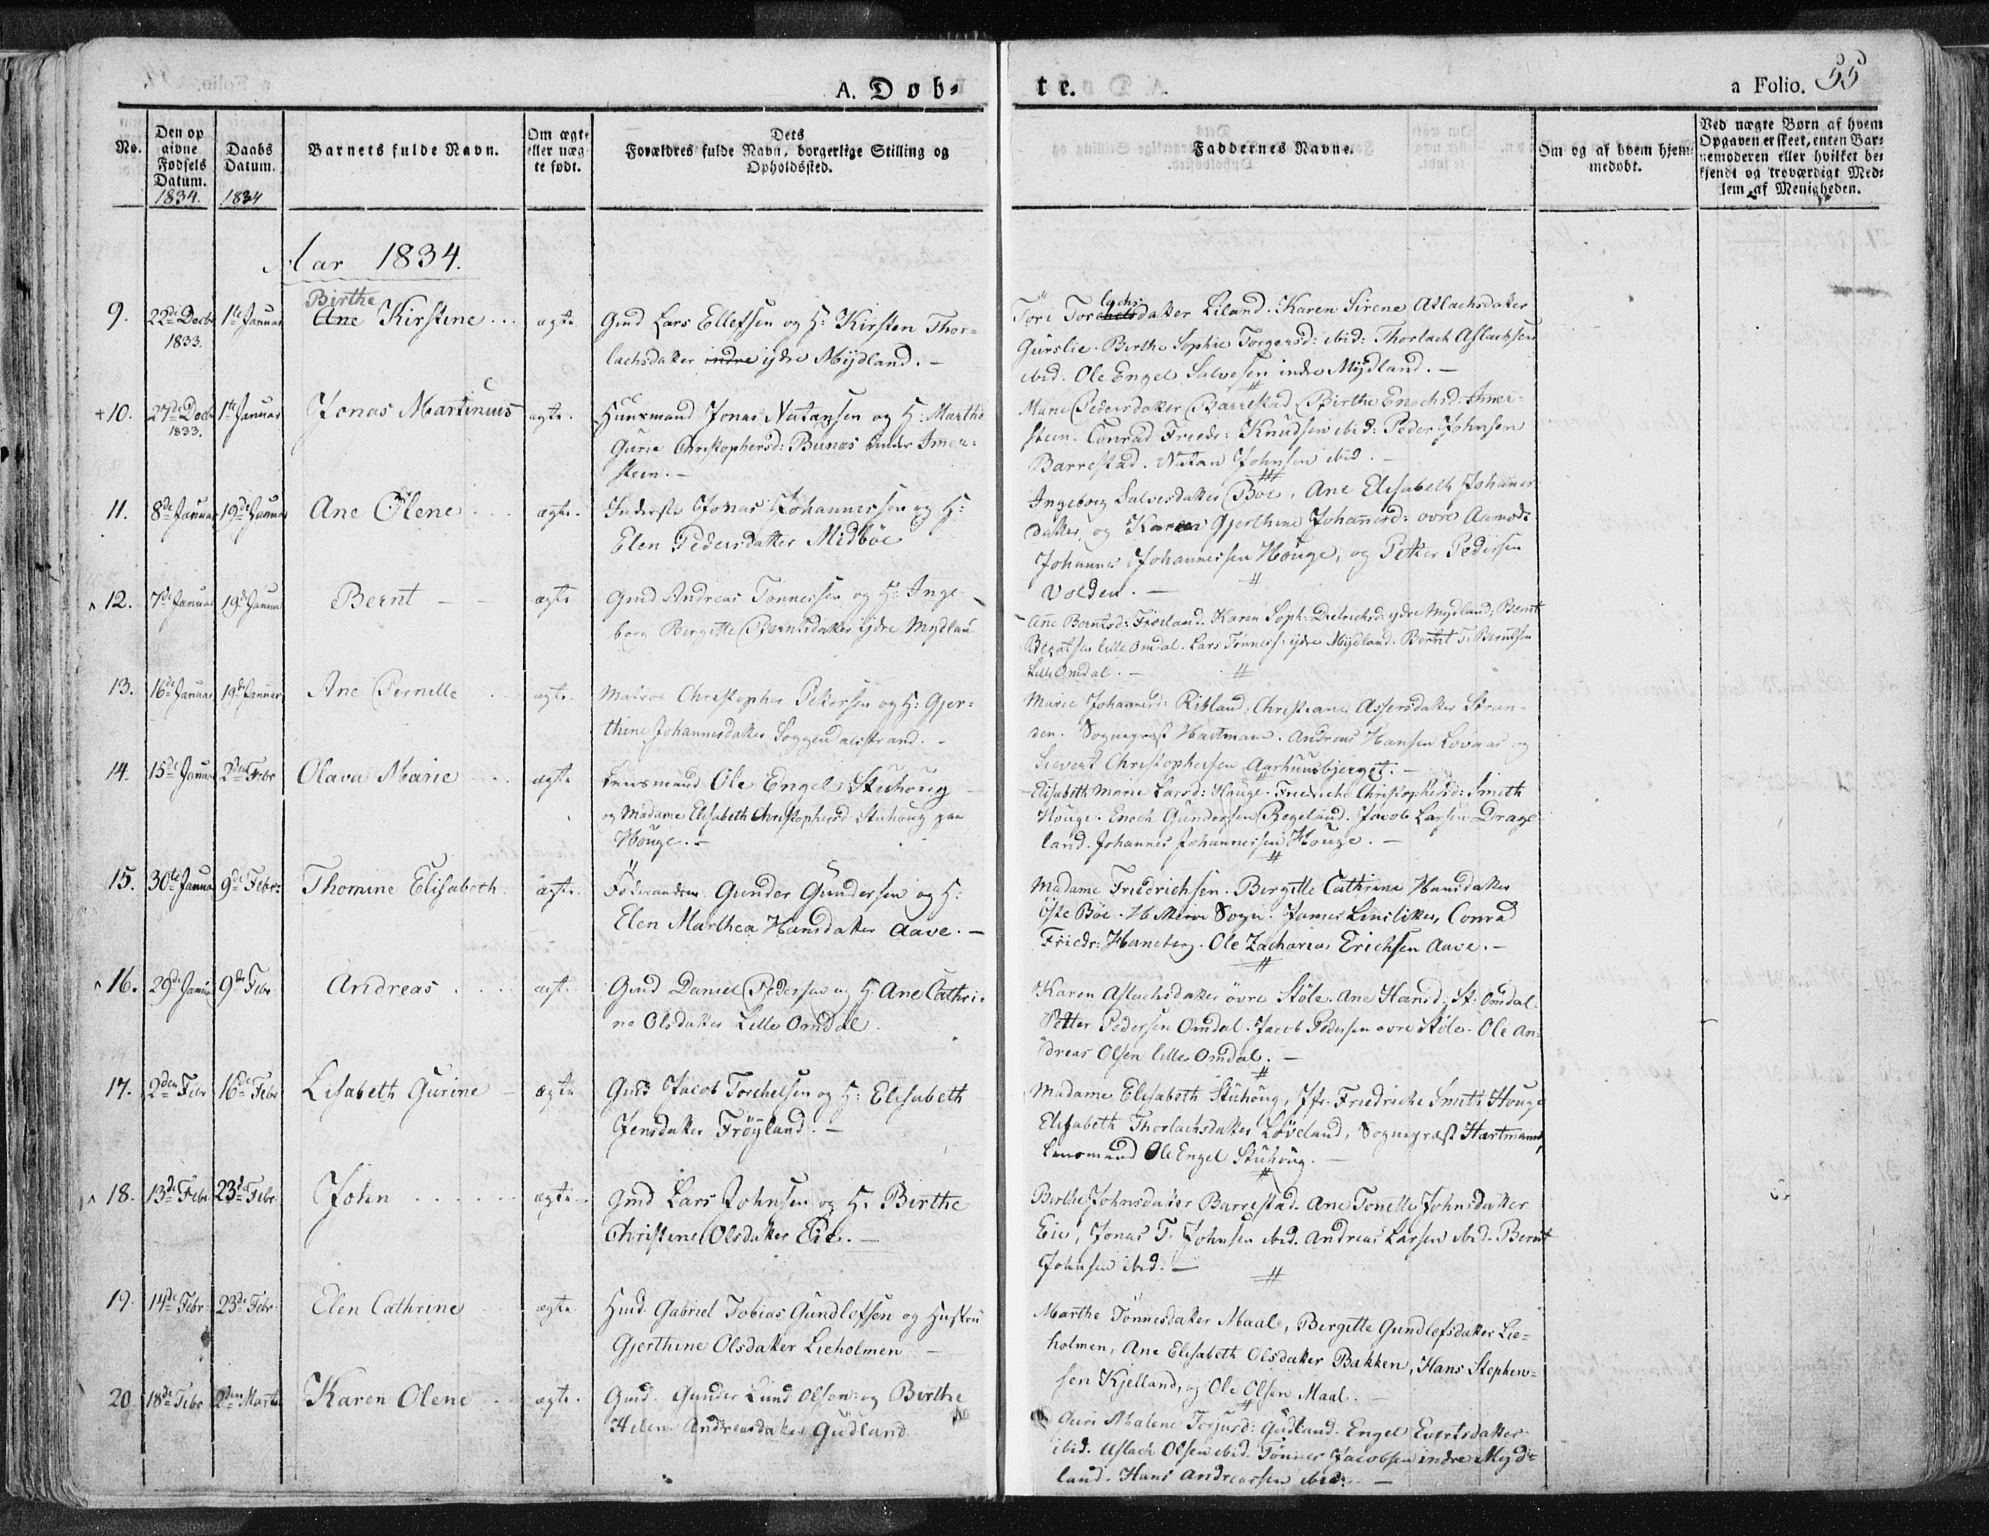 A. Døb=
te.
a Folio. 55
No.
Den op
givne
Fødsels
Datum.
1834.
Daabs
Datum.
1834
Barnets fulde Navn.
Om ægte
eller uæg
te født.
Dets
Forældres fulde Navn, borgerlige Stilling og
Opholdssted.
Faddernes Navne.
Om og af hvem hjem
medøbt.
Ved uægte Børn af hvem
Opgaven er skeet, enten Bar=
nemoderen eller hvilket be=
kjendt og troværdigt Med=
lem af Menigheden.
Aar 1834.
9. 22de Decbr 1833. 1ste Januar Birthe Ane Kirstine ... ægte
Gmd Lars Ellefsen og H: Kirsten Thor=
lachsdatter indre ydre Mydland. —
Tori Torchelsdatter lachs Liland. Karen Sirene Aslachsdatter
Gurslie. Berthe Sophie Torgersd: ibid: Thorlach Aslachsen
ibid. Ole Engel Salvesen indre Mydland. —
+10. 27de Decbr 1833. 1ste Januar Jonas Martinius ægte.
Huusmand Jonas Natansen og H: Marthe
Gurie Christophersd: Bunæs under Imer=
stein. —
Marie Pedersdatter Barrestad. Birthe Enochsd: Imer=
stein. Conrad Friedr: Knudsen ibid: Peder Johnsen
Barrestad. Natan Johnsen ibid. —
11. 8de Januar 19de Januar Ane Olene ... ægte.
Inderste Jonas Johannessen og H:
Elen Pedersdatter Midböe
Ingeborg Salvesdatter Böe, Ane Elisabeth Johannes=
datter, og Karen Gjerthine Johannesd: øvre Aamodt
Johannes Johannessen Houge, og Petter Pedersen
Volden. —
12. 7de Januar 19de Januar Bernt — ægte
Gmd Andreas Tönnessen og H: Inge=
borg Bergitte Berntsdatter ydre Mydland
Ane Berntsd: Fröeland. Karen Soph: Dietrichsd: ydre Mydland, Bernt
Berntsen lille Omdal. Lars Tönness: ydre Mydland. Berthel T: Berntsen
Lille Omdal. —
13. 16de Januar 19de Januar Ane Pernille ... ægte.
Matros Christopher Petersen og H: Gjer=
thine Johannesdatter Soggendalsstrand. —
Marie Johannesd: Ribland, Christiane Assersdatter Stran=
den. Sognepræst Hartmann. Andreas Hansen Lovaas og
Sievert Christophersen Aarhuusbjerget. —
14. 15de Januar 2den Febr Olava Marie ... ægte
Lensmand Ole Engel Stuhoug
og Madame Elisabeth Christophersd: Stuhoug paa
Houge. —
Elisabeth Marie Larsd: Houge. Friedriche Christophersd: Smith
Houge. Enoch Gundersen Regeland. Jacob Larsen Drage
land. Johannes Johannessen Houge. —
15. 30te Januar 9de Febr: Thomine Elisabeth ægte.
Föderaadsm. Gunder Gundersen og H:
Elen Marthea Hansdatter Aave. —
Madame Friedrichsen. Bergitte Cathrine Hansdatter
Öste Böe. Sogn. Conrad
Friedr: Henneberg. Ole Zacharias Erichsen Aave. —
16. 29de Januar 9de Febr Andreas .... ægt.
Gmd Daniel Pedersen og H: Ane Cathri=
ne Olsdatter Lille Omdal
Karen Aslachsdatter övre Stöle. Ane Hansd: St: Omdal.
Petter Pedersen Omdal. Jacob Pedersen övre Stöle. Ole An=
dreas Olsen lille Omdal. —
17. 2den Febr 16de Febr Lisabeth Gurine — ægte
Gmd Jacob Torchelsen og H: Elisabeth
Jensdatter Fröyland. —
Madame Elisabeth Stuhoug, Jfr. Friedriche Smith Houge
Elisabeth Thorlachsdatter Löveland, Sognepræst Hartmann,
Lensmand Ole Engel Stuhoug. —
18. 13de Febr 23de Febr John ...... ægte
Gmd Lars Johnsen og H. Birthe
Christine Olsdatter Eie. —
Berthe Johnsdatter Barrestad. Ane Tonette Johnsdatter
Eie, Jonas T. Johnsen ibid. Andreas Larsen ibid. Bernt
Johnsen ibid. —
19. 14de Febr. 23de Febr Elen Cathrine ægte
Hmd. Gabriel Tobias Gundlefsen og Hustru
Gjerthine Olsdatter Lieholmen —
Marthe Tönnesdatter Maal, Bergitte Gundlefsdatter Lie=
holmen, Ane Elisabeth Olsdatter Bakken, Hans Stephen=
sen Kjelland, og Ole Olsen Maal. —
20 18de Febr 2den Marts Karen Olene . ægte.
Gmd. Gunder Lund Olsen og Berthe
Helene Andreasdatter Gudland
Guri Malene Torjusd: Gudland. Engel Evertsdatter
ibid. Aslach Olsen ibid. Tönnes Jacobsen indre Myd=
land. Hans Andreassen ibid: —